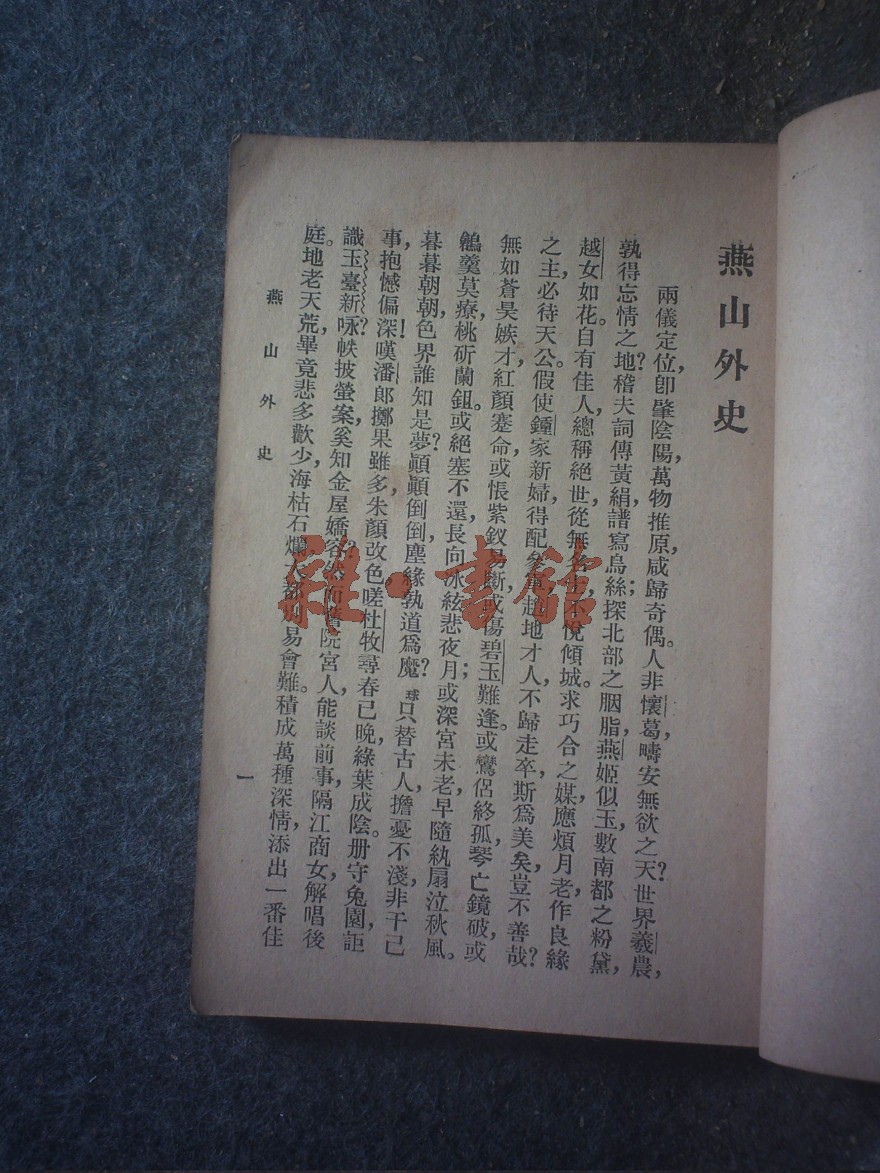 燕山外史
兩儀定位,卽肇陰陽,萬物推原,咸歸奇偶。人非懷葛,疇安無欲之天?世界羲農,
孰得忘情之地?稽夫詞傳黃絹,譜寫烏絲;探北部之胭脂,燕姬似玉,數南都之粉黛,
越女如花。自有佳人,總稱絕世,從無 不悅傾城。求巧合之媒,應煩月老,作良緣
之主,必待天公。假使鍾家新婦,得配參軍,趙地才人,不歸走卒,斯爲美矣,豈不善哉?
無如蒼昊嫉才,紅顏蹇命,或悵紫釵易斷,或傷碧玉難逢。或鸞侶終孤,琴亡鏡破,或
鶼羹莫療,桃斫蘭鉏。或絕塞不還,長向冰絃悲夜月;或深宮未老,早隨紈扇泣秋風。
暮暮朝朝,色界誰知是夢?顚顚倒倒,塵緣孰道爲魔?球只替古人,擔憂不淺,非干己
事,抱憾偏深!嘆潘郎擲果雖多,朱顏改色,嗟杜牧尋春已晚,綠葉成陰。册守兔園,詎
識玉臺新咏?帙披螢案,奚知金屋嬌容?然而 院宮人,能談前事,隔江商女,解唱後
庭。地老天荒,畢竟悲多歡少,海枯石爛,大都別易會難。積成萬種深情,添出一番佳
燕山外史
一
雜·書館